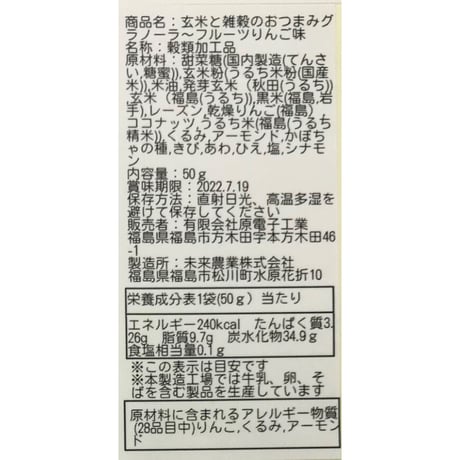 商品名：玄米と雑穀のおつまみグ
ラノーラ～フルーツりんご味
名称：穀類加工品
原材料：甜菜糖(国内製造(てんさ
い,糖蜜)),玄米粉(うるち米粉(国産
米)),米油,発芽玄米（秋田(うるち))
,玄米（福島(うるち)),黒米(福島,岩
手),レーズン,乾燥りんご(福島),
ココナッツ,うるち米(福島(うるち
精米)),くるみ,アーモンド,かぼち
ゃの種,きび,あわ,ひえ,塩,シナモ
ン
内容量：50ｇ
賞味期限：2022.7.19
保存方法：直射日光、高温多湿を
避けて保存してください
販売者：有限会社原電子工業
福島県福島市方木田字本方木田46
-1
製造所：未来農業株式会社
福島県福島市松川町水原花折10
栄養成分表1袋(50ｇ）当たり
エネルギー240kcal　たんぱく質3.
26g　脂質9.7g　炭水化物34.9ｇ
食塩相当量0.1ｇ
※この表示は目安です
※本製造工場では牛乳、卵、そ
ばを含む製品を生産しています
原材料に含まれるアレルギー物質
(28品目中)りんご,くるみ,アーモン
ド